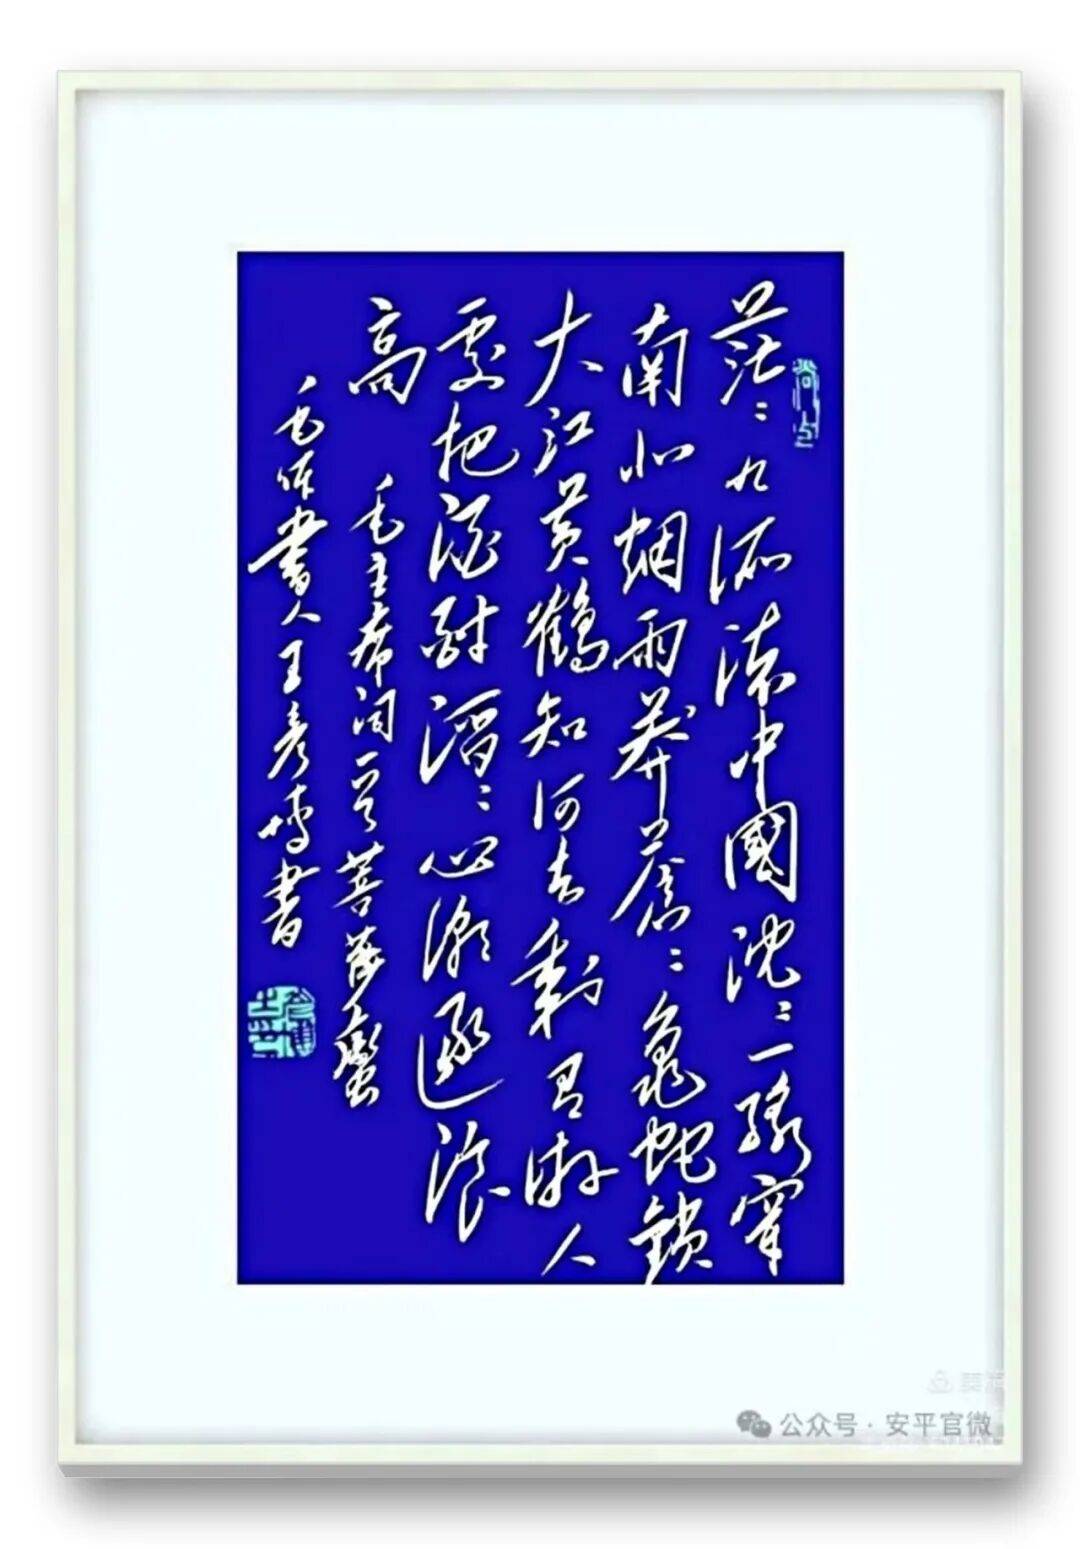 茫〻九派流中國沈〻一線穿
南北烟雨莽蒼〻龜蛇鎖
大江黄鶴知何去剩有游人
處把酒酹滔〻心潮逐浪
高 毛主席词一首菩薩蠻
毛体書人王彦博書
公众号 · 安平官微